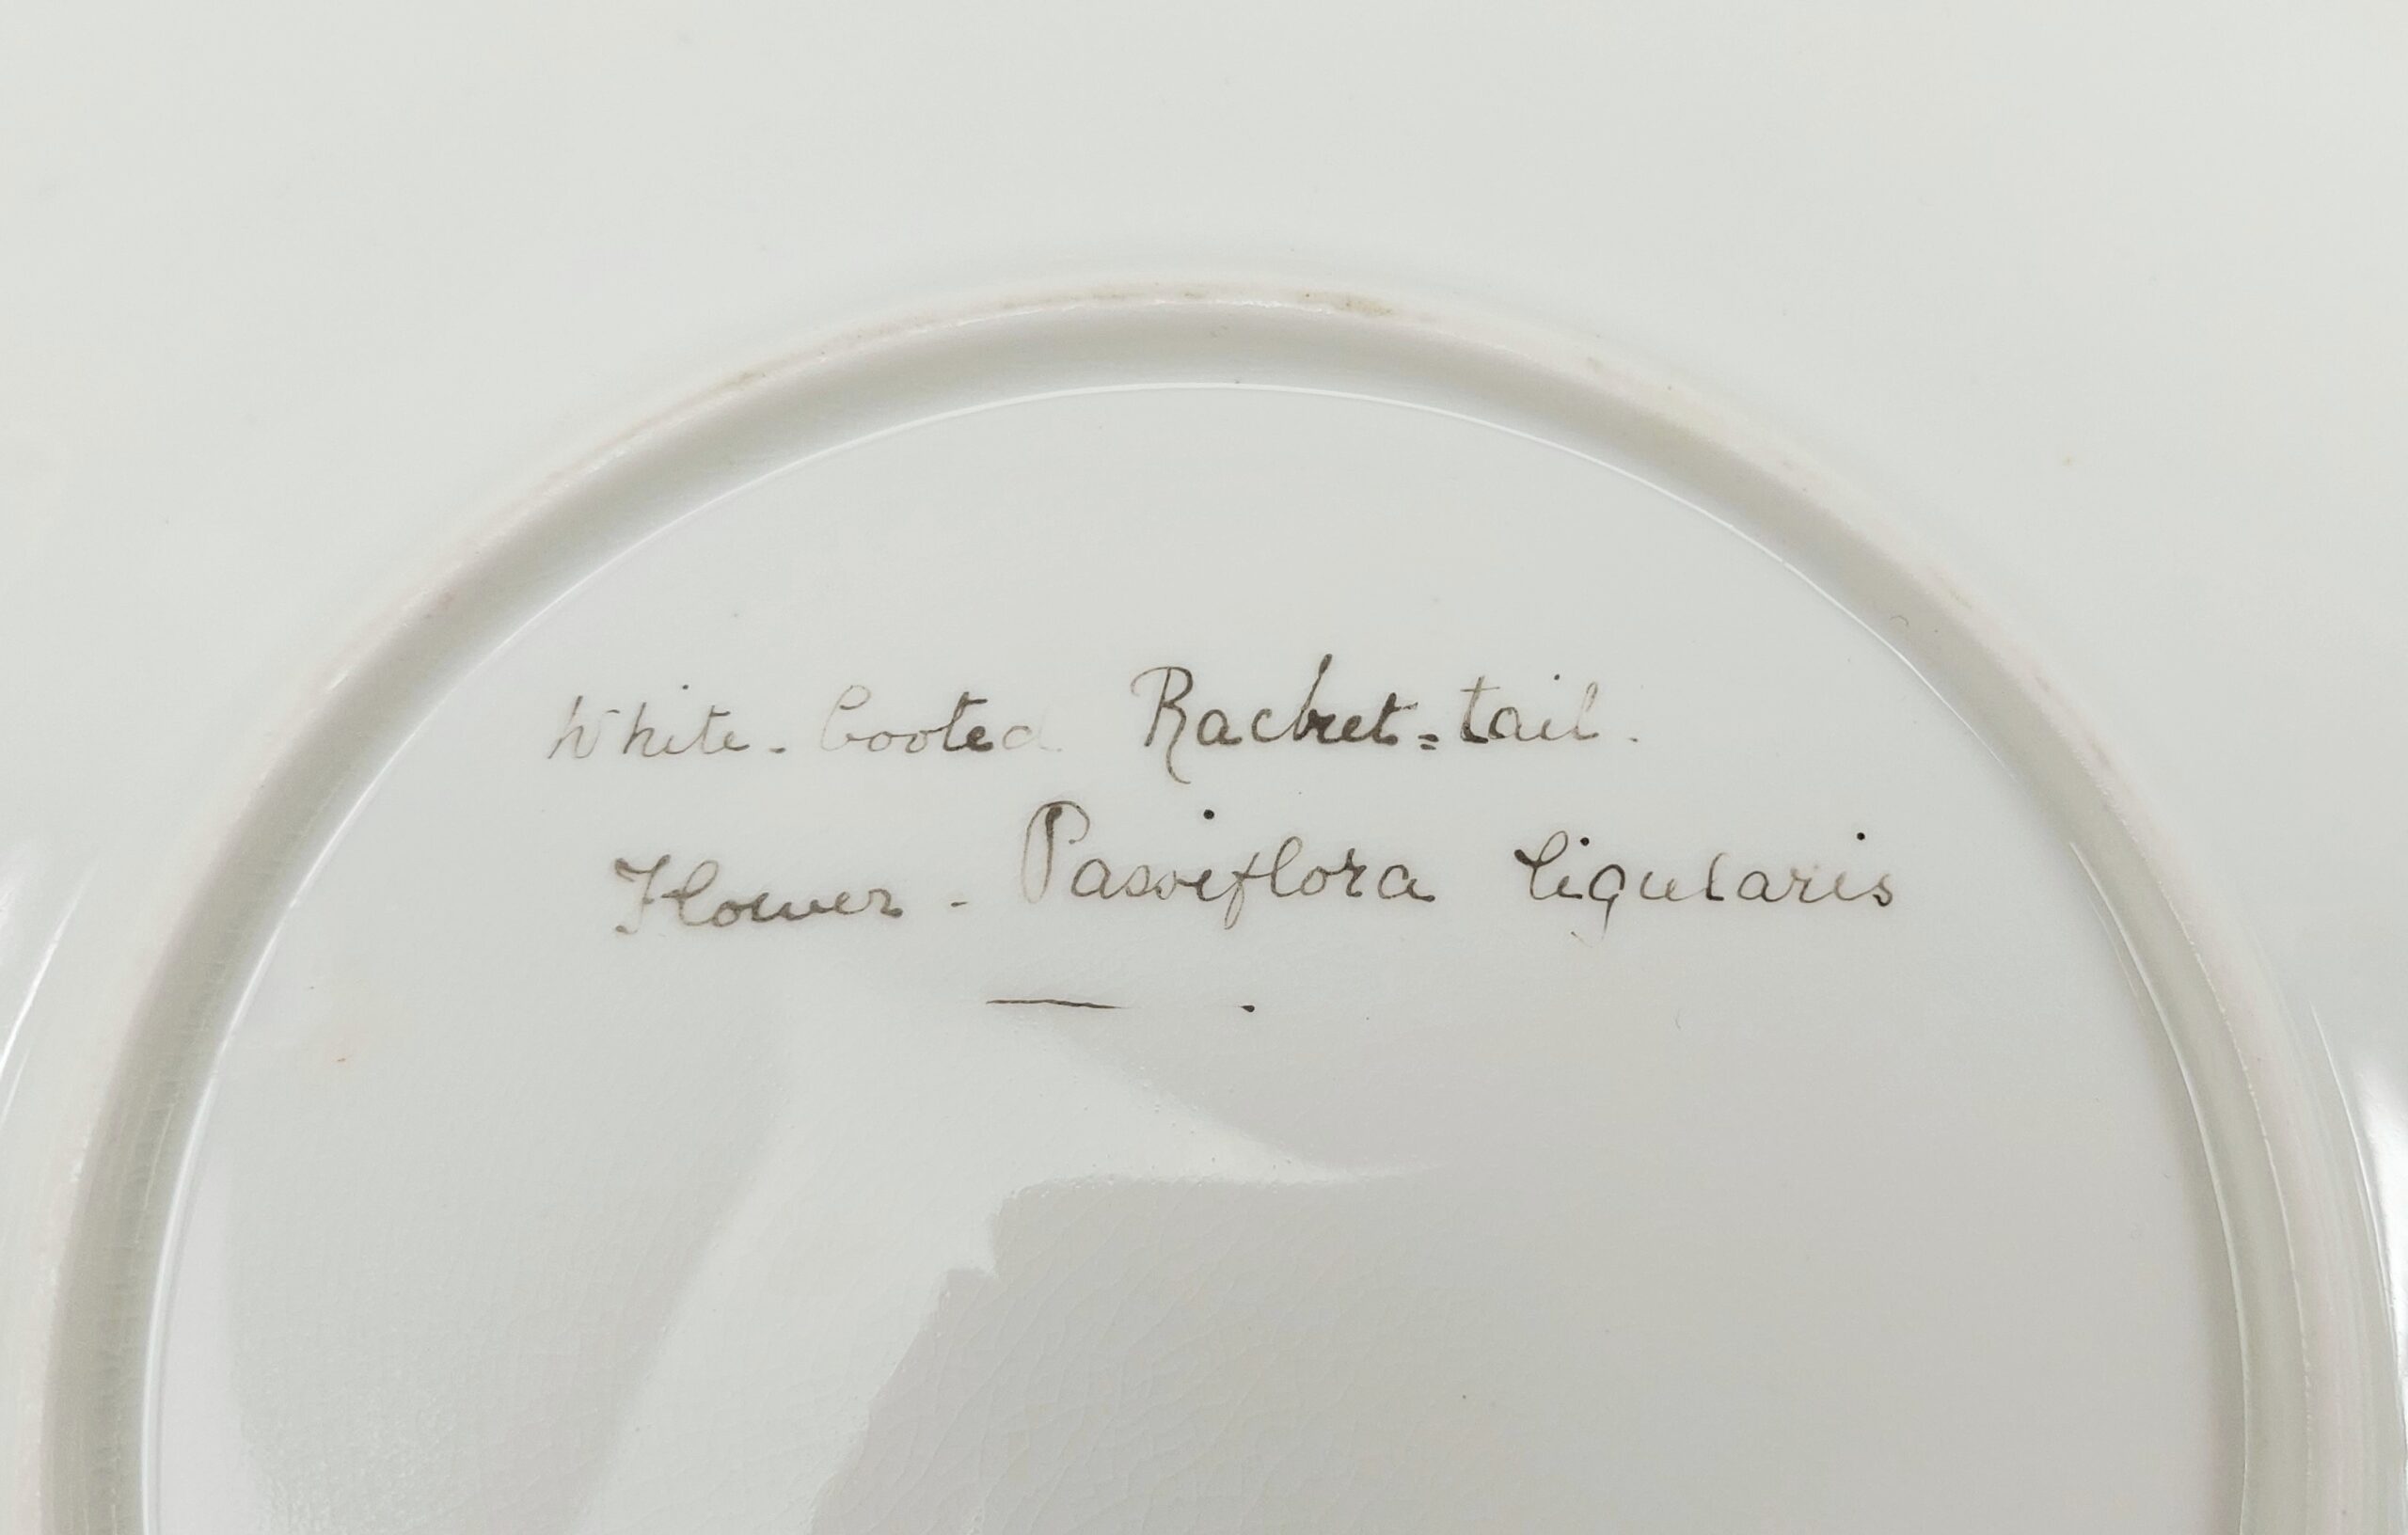 White-booted Racket=tail.
Flower - Passiflora ligularis